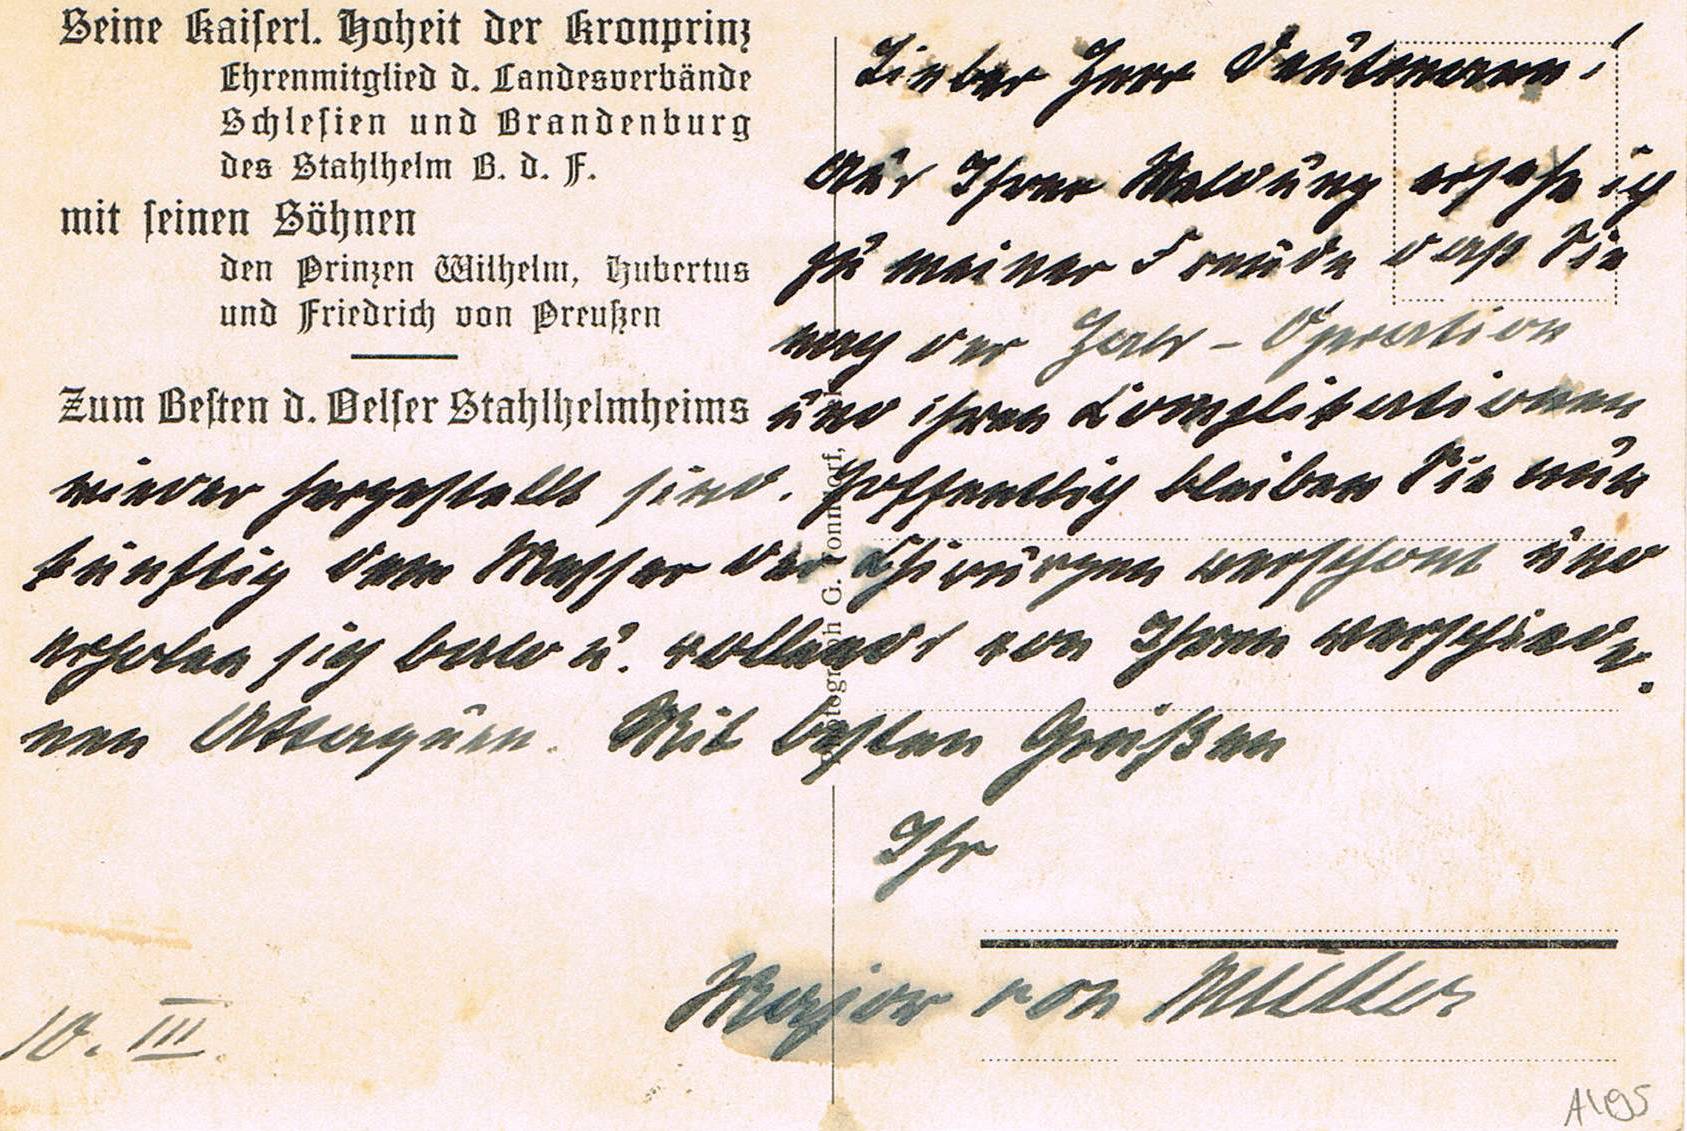 Seine Kaiserl. Hoheit der Kronprinz
Ehrenmitglied d. Landesverbände
Schlesien und Brandenburg
des Stahlhelm B. d. F.
mit seinen Söhnen
den Prinzen Wilhelm, Hubertus
und Friedrich von Preußen
Zum Besten d. Oelser Stahlhelmheims
Lieber Herr
Aus Ihrer Meldung ersehe ich
zu meiner Freude daß Sie
nach der Hals-Operation
und ihren Komplikationen
wieder hergestellt sind. Hoffentlich bleiben Sie nun
künftig dem Messer der Chirurgen verschont und
erholen sich bald u. vollends von Ihren verschiede-
nen Attaquen. Mit besten Grüßen
Ihr
Major von Müller
10. III.
G.
A195